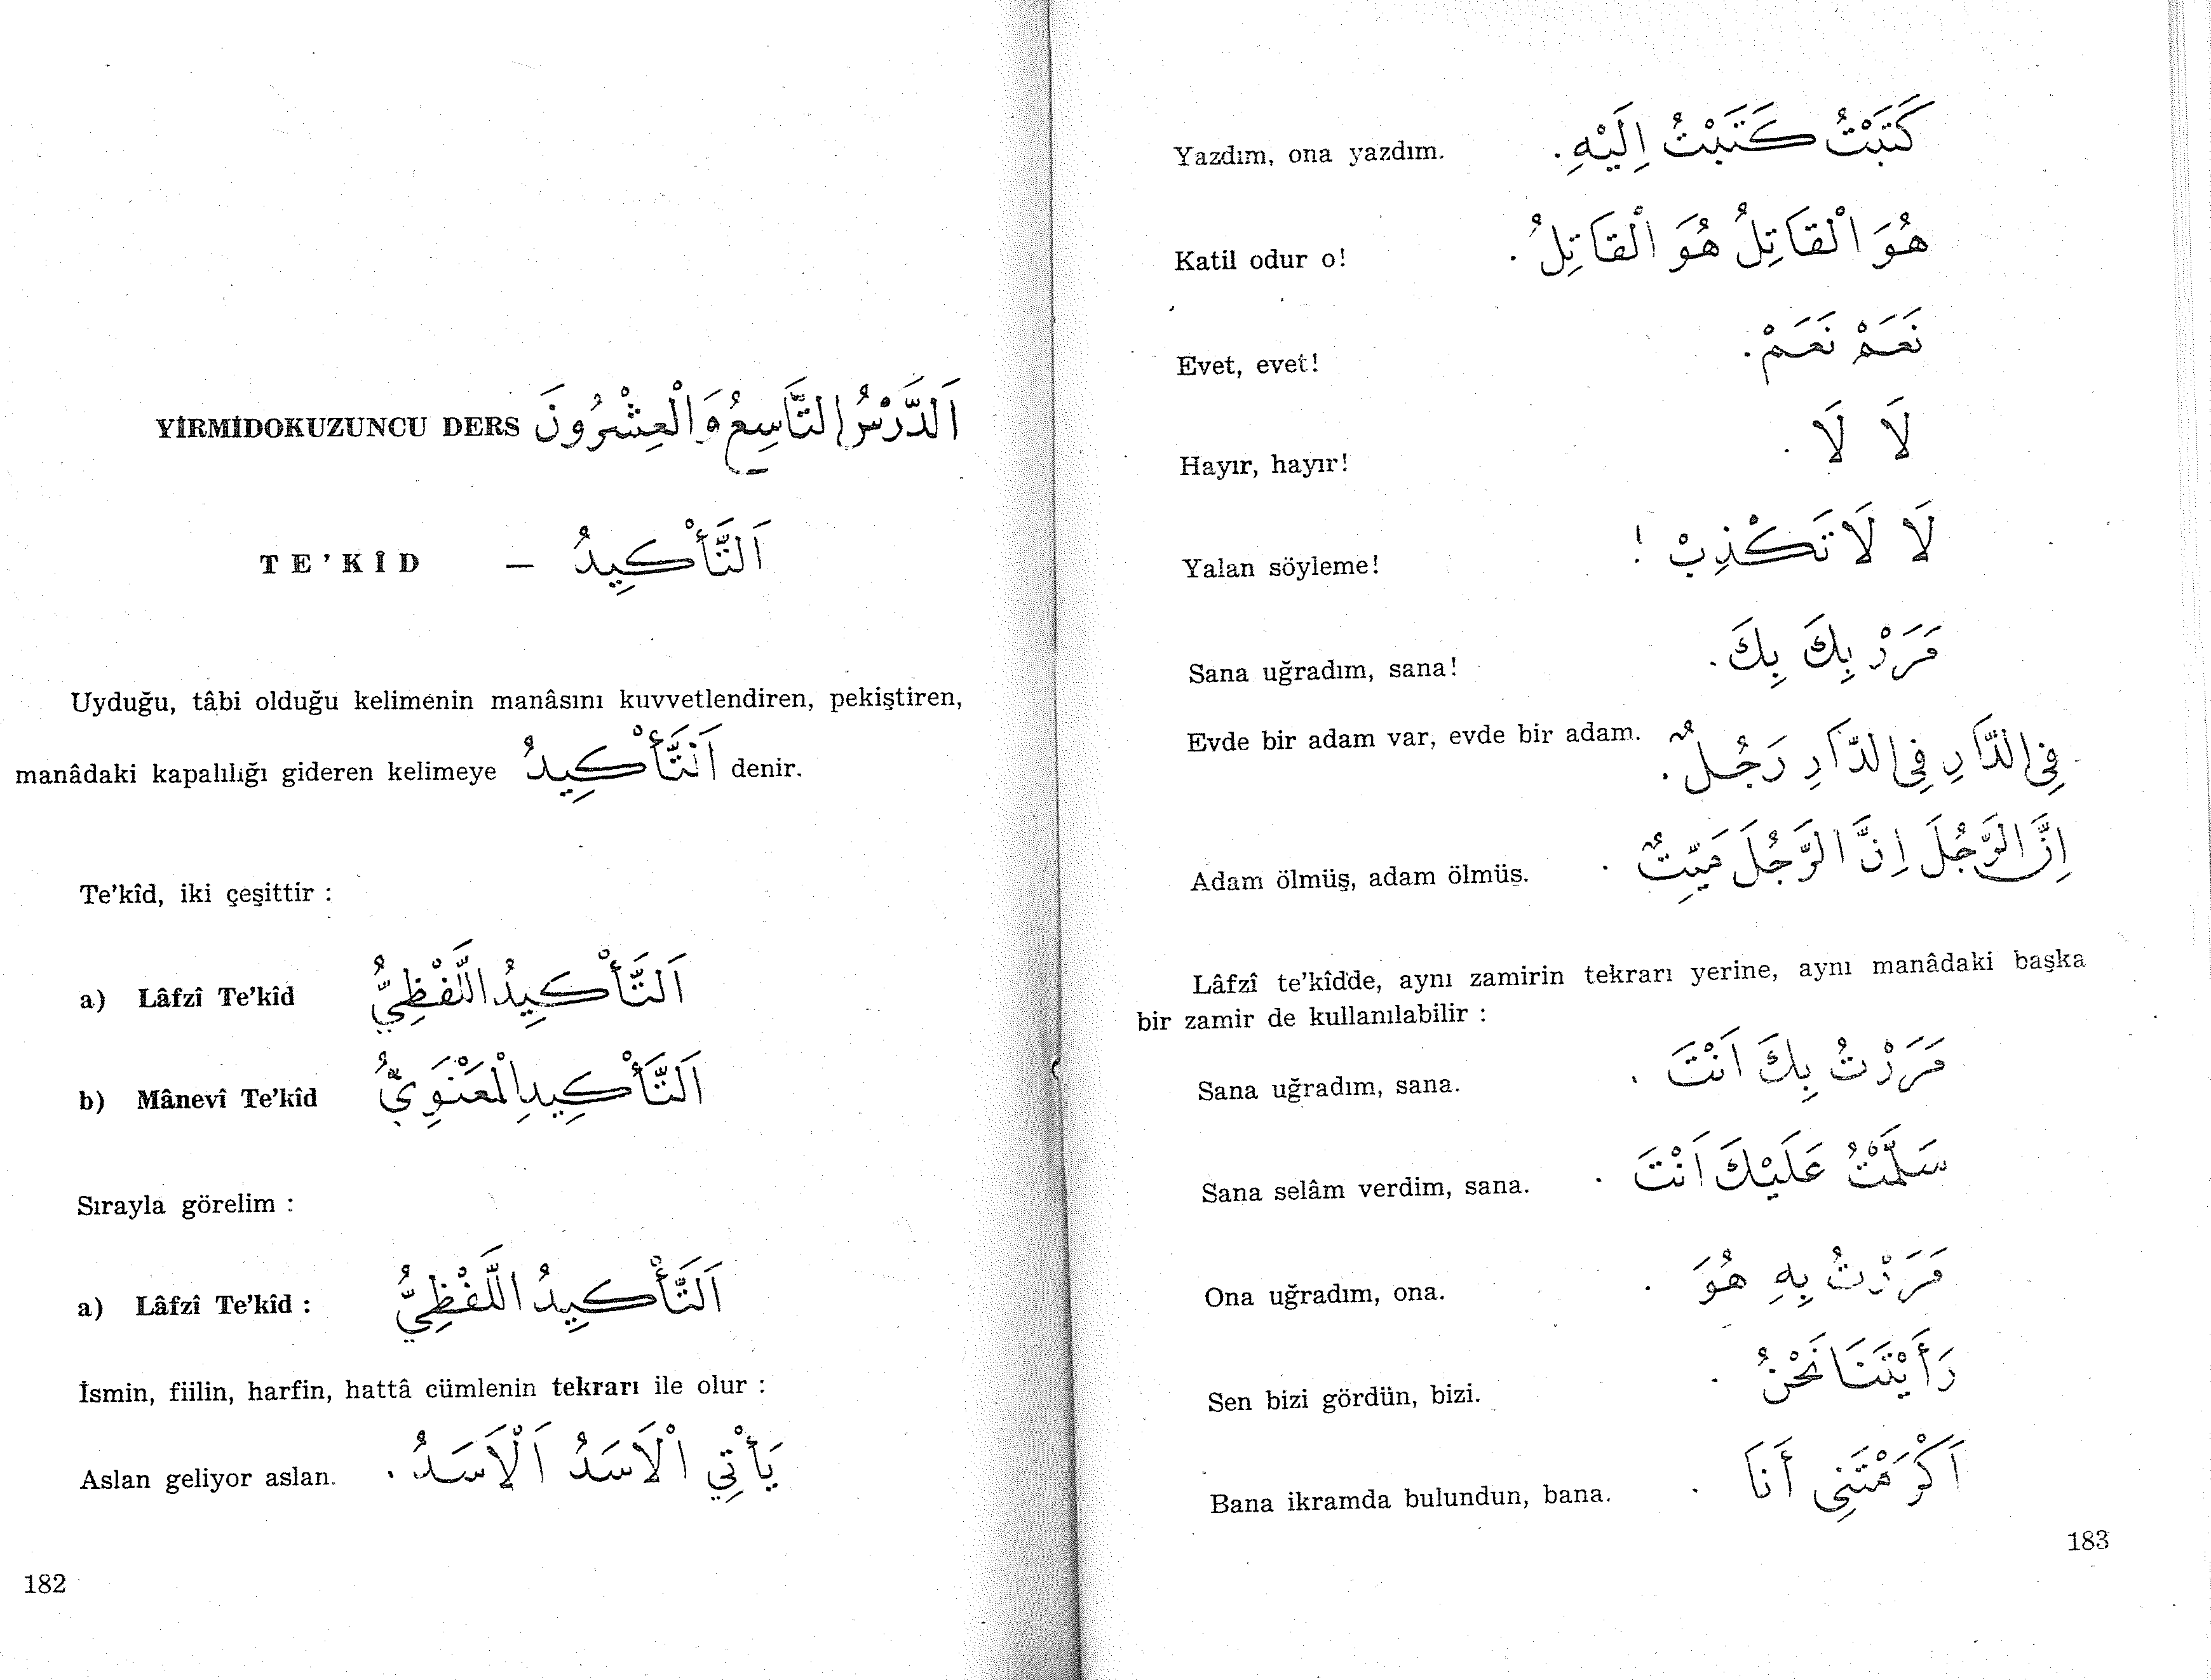 YİRMİDOKUZUNCU DERS اَلدَّرْسُ التَّاسِعُ وَالْعِشْرُونَ
TE'KÎD — اَلتَّأْكِيدُ
Uyduğu, tâbi olduğu kelimenin manâsını kuvvetlendiren, pekiştiren,
manâdaki kapalılığı gideren kelimeye اَلتَّأْكِيدُ denir.
Te'kîd, iki çeşittir :
a) Lâfzî Te'kîd اَلتَّأْكِيدُ اللَّفْظِيُّ
b) Mânevî Te'kîd اَلتَّأْكِيدِ الْمَعْنَوِيُّ
Sırayla görelim :
a) Lâfzî Te'kîd : اَلتَّأْكِيدُ اللَّفْظِيُّ
İsmin, fiilin, harfin, hattâ cümlenin tekrarı ile olur :
Aslan geliyor aslan. يَأْتِي الْاَسَدُ اَلْاَسَدُ .
182
Yazdım, ona yazdım. كَتَبْتُ كَتَبْتُ اِلَيْهِ .
Katil odur o! هُوَ الْقَاتِلُ هُوَ الْقَاتِلُ .
Evet, evet! نَعَمْ نَعَمْ .
Hayır, hayır! لَا لَا .
Yalan söyleme! لَا لَا تَكْذِبْ !
Sana uğradım, sana! مَرَرْ بِكَ بِكَ .
Evde bir adam var, evde bir adam. فِي الدَّارِ فِي الدَّارِ رَجُلٌ .
Adam ölmüş, adam ölmüş. اِنَّ الرَّجُلَ اِنَّ الرَّجُلَ مَيِّتٌ .
Lâfzî te'kîdde, aynı zamirin tekrarı yerine, aynı manâdaki başka
bir zamir de kullanılabilir :
Sana uğradım, sana. مَرَرْتُ بِكَ اَنْتَ .
Sana selâm verdim, sana. سَلَّمْتُ عَلَيْكَ اَنْتَ .
Ona uğradım, ona. مَرَرْتُ بِهِ هُوَ .
Sen bizi gördün, bizi. رَأَيْتَنَا نَحْنُ .
Bana ikramda bulundun, bana. اَكْرَمْتَنِي أَنَا .
183